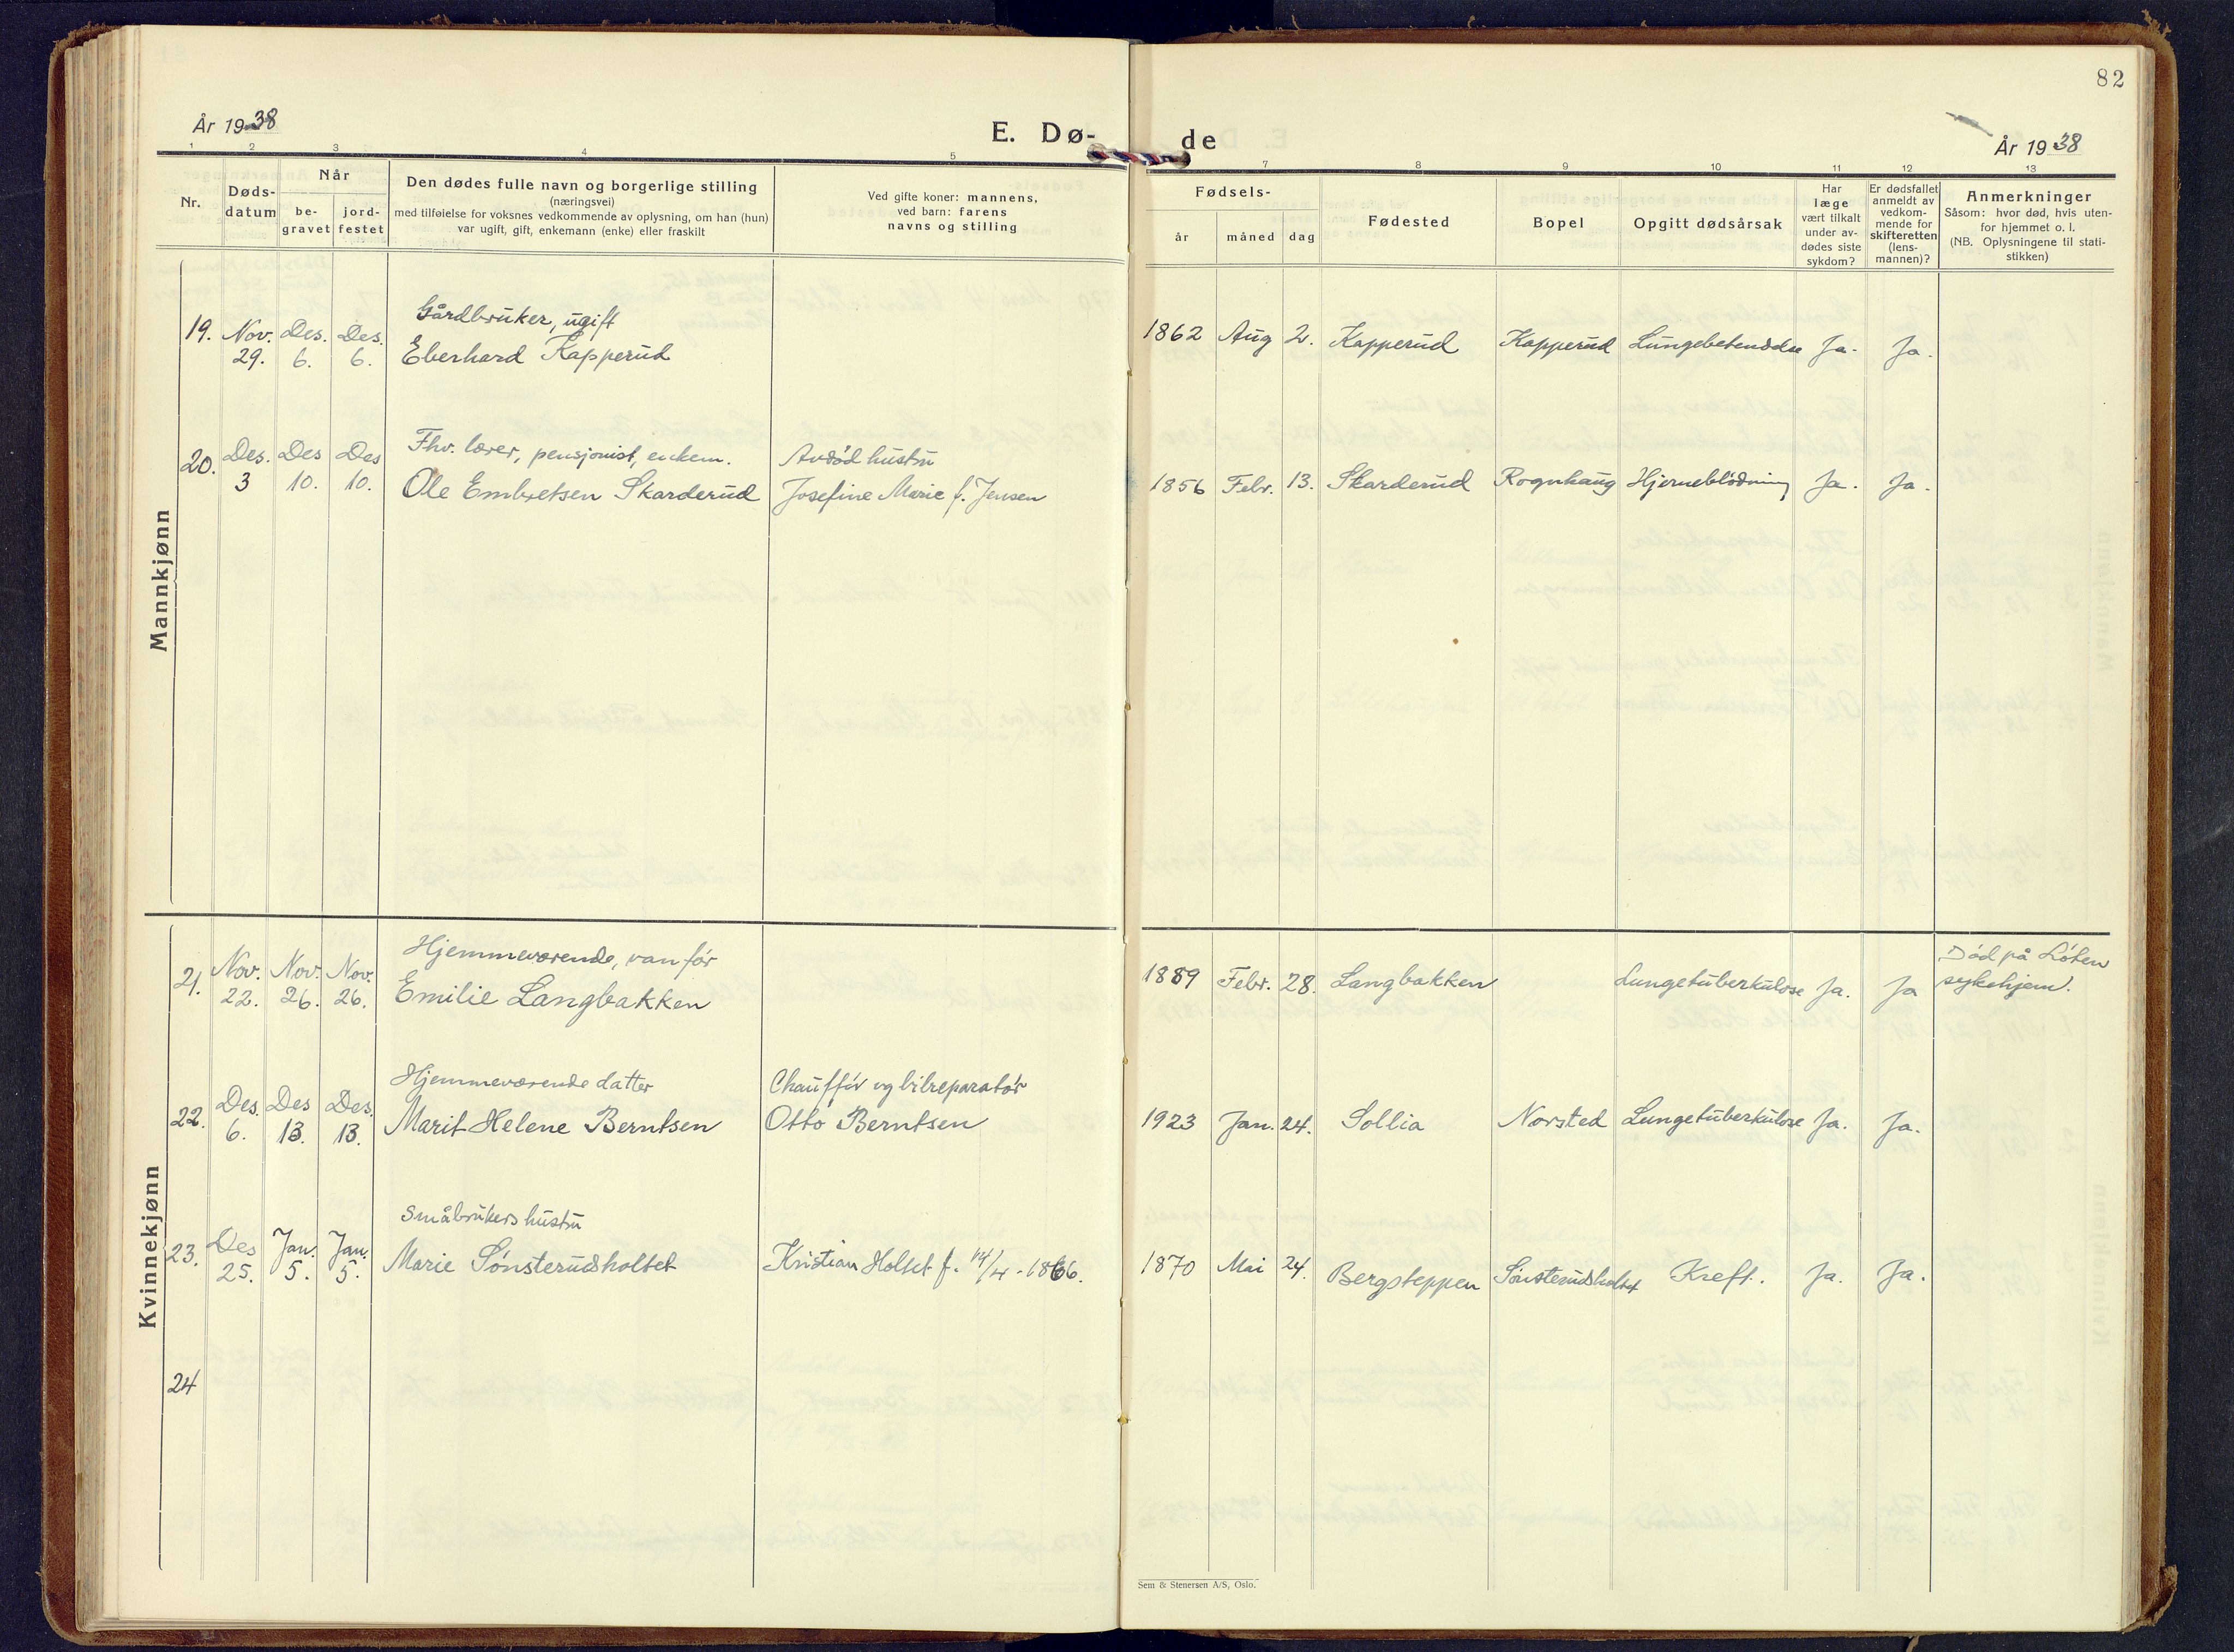 82
År 1938
E. Dø-
de
År 1938
1 2 3 4 5 7 8 9 10 11 12 13
Nr.
Døds-
datum
Når
be-
gravet
jord-
festet
Den dødes fulle navn og borgerlige stilling
(næringsvei)
med tilføielse for voksnes vedkommende av oplysning, om han (hun)
var ugift, gift, enkemann (enke) eller fraskilt
Ved gifte koner: mannens,
ved barn: farens
navns og stilling
Fødsels-
år måned dag
Fødested
Bopel
Opgitt dødsårsak
Har
læge
vært tilkalt
under av-
dødes siste
sykdom?
Er dødsfallet
anmeldt av
vedkom-
mende for
skifteretten
(lens-
mannen)?
Anmerkninger
Såsom: hvor død, hvis uten-
for hjemmet o. l.
(NB. Oplysningene til stati-
stikken)
Mannkjønn
Gårdbruker, ugift
19. Nov. Des. Des.
29. 6. 6. Eberhard Kapperud
1862 Aug 2. Kapperud Kapperud Lungebetendelse Ja. Ja.
Fhv. lærer, pensjonist, enkem. Avdød hustru
20. Des. Des Des
3 10. 10. Ole Embretsen Skarderud Josefine Marie f. Jensen
1856 Febr. 13. Skarderud Rognhaug Hjerneblødning Ja. Ja.
Kvinnekjønn
Hjemmeværende, vanfør
21. Nov. Nov. Nov.
22. 26. 26. Emilie Langbakken
1889 Febr. 28. Langbakken Lungetuberkulose Ja. Ja
Død på Løten
sykehjem.
Hjemmeværende datter Chauffør og bilreparatør
22. Des. Des Des.
6. 13. 13. Marit Helene Berntsen Otto Berntsen
1923 Jan. 24. Sollia Norsted Lungetuberkulose Ja. Ja.
Småbrukers hustru
23. Des Jan. Jan.
25. 5. 5. Marie Sønsterudsholtet Kristian Holtet f. 14/4 - 1866.
1870 Mai 24. Bergsteppen Sønsterudsholtet Kreft. Ja. Ja.
24
Sem & Stenersen A/S, Oslo.